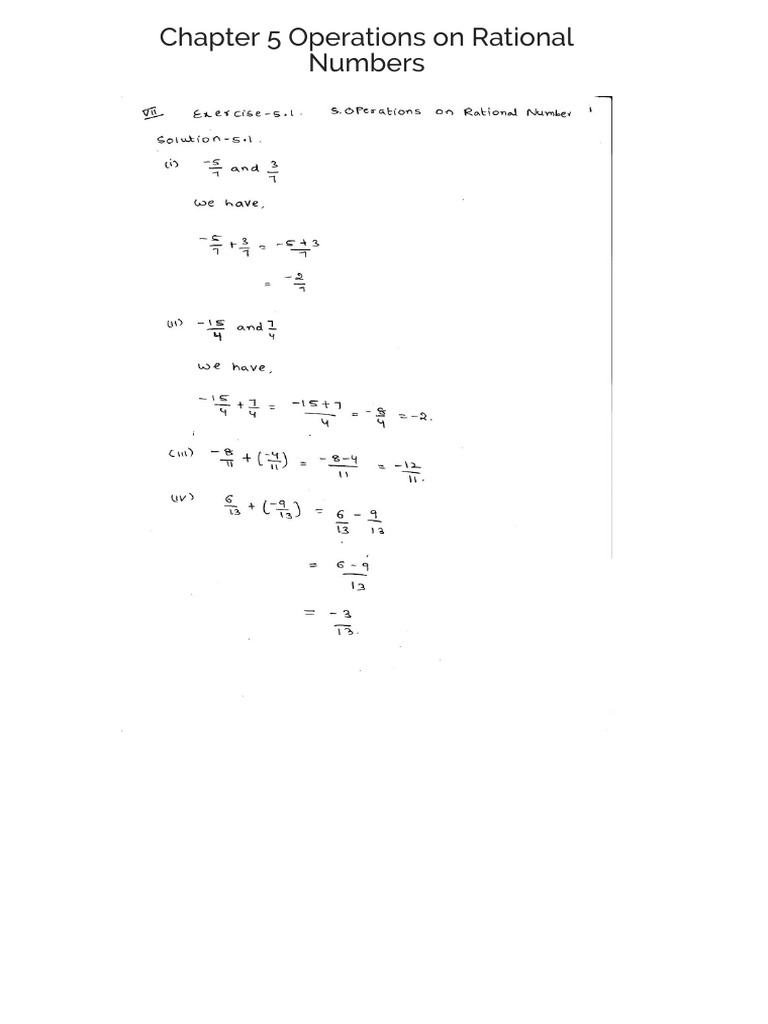 Chapter 5 Operations on Rational
Numbers
VII Exercise-5.1. 5.Operations on Rational Number 1
Solution-5.1.
(i) -5/7 and 3/7
we have,
-5/7 + 3/7 = -5+3/7
= -2/7
(ii) -15/4 and 7/4
we have,
-15/4 + 7/4 = -15+7/4 = -8/4 = -2.
(iii) -8/11 + (-4/11) = -8-4/11 = -12/11.
(iv) 6/13 + (-9/13) = 6/13 - 9/13
= 6-9/13
= -3/13.